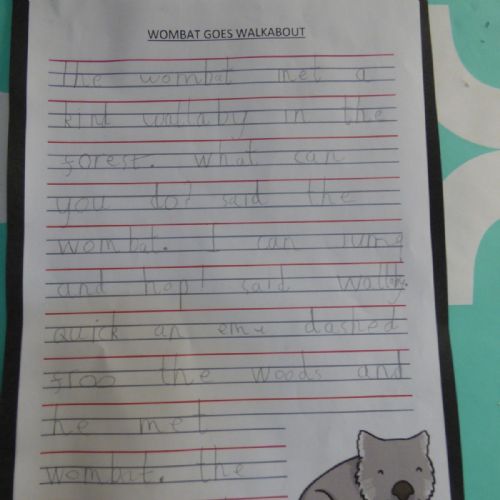 WOMBAT GOES WALKABOUT
The wombat met a
kind wallaby in the
forest. What can
you do? said the
wombat. I can jump
and hop! said Wallaby.
quick an emu dashed
froo the woods and
he met
wombat. the